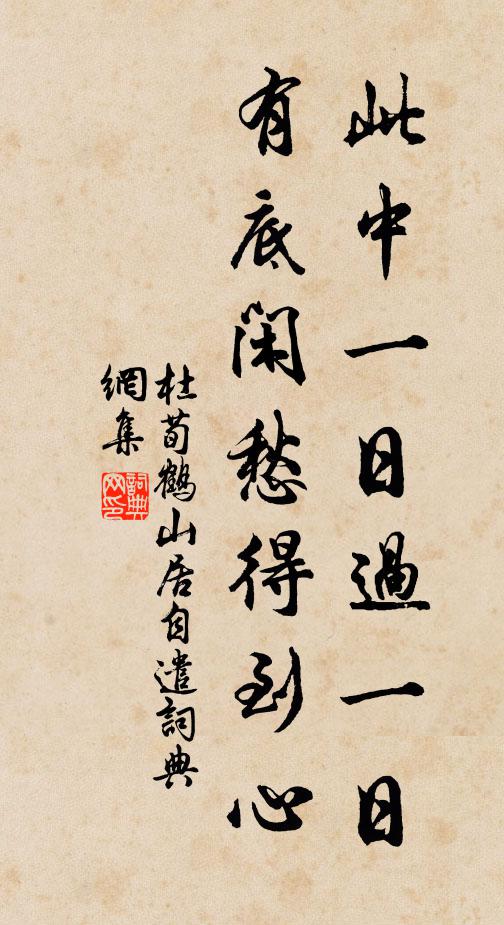 此中一日過一日
有底閑愁得到心
杜荀鶴山居自遣詞典
網集
詞典
网印